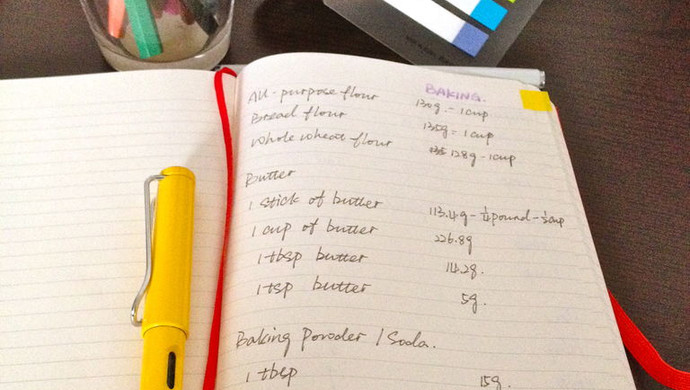 BAKING.
All-purpose flour 130g. - 1 cup
Bread flour 135g = 1 cup
Whole wheat flour 128g - 1 cup
Butter
1 stick of butter 113.4g - 1/4 pound - 1/2 cup
1 cup of butter 226.8g
1 tbsp butter 14.2g.
1 tsp butter 5g.
Baking Powder / Soda.
1 tbsp 15g.